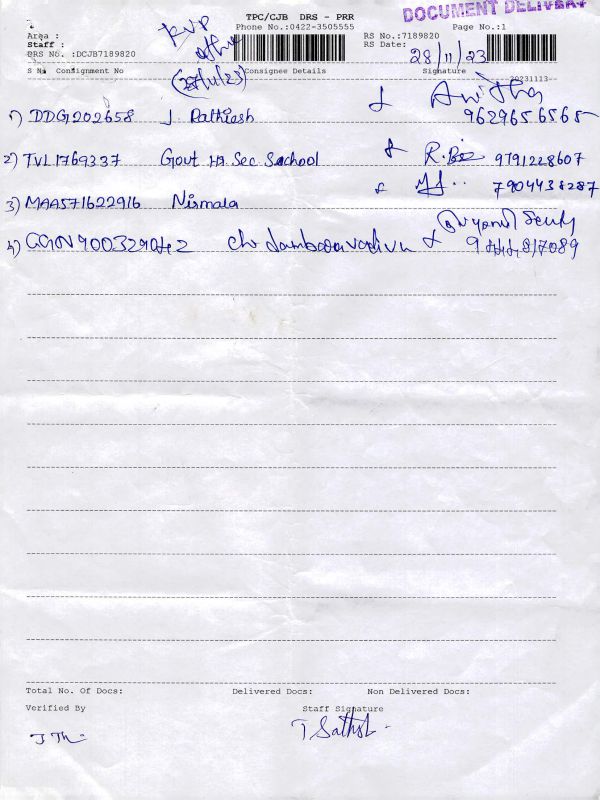 TPC/CJB DRS - PRR
DOCUMENT DELIVERY
Area :
Phone No.:0422-3505555
Page No.:1
Staff :
RS No.:7189820
DRS No. :DCJB7189820
RS Date:
28/11/23
KVP
S No Consignment No
Consignee Details
Signature
20231113--
1) DDG1202658 J. Pathiesh
Anitha
9629656565
2) TVL1769337 Govt Hr. Sec. School
9791228607
7904438287
3) MAA571622916 Nirmala
4)
Total No. Of Docs:
Delivered Docs:
Non Delivered Docs:
Verified By
Staff Signature